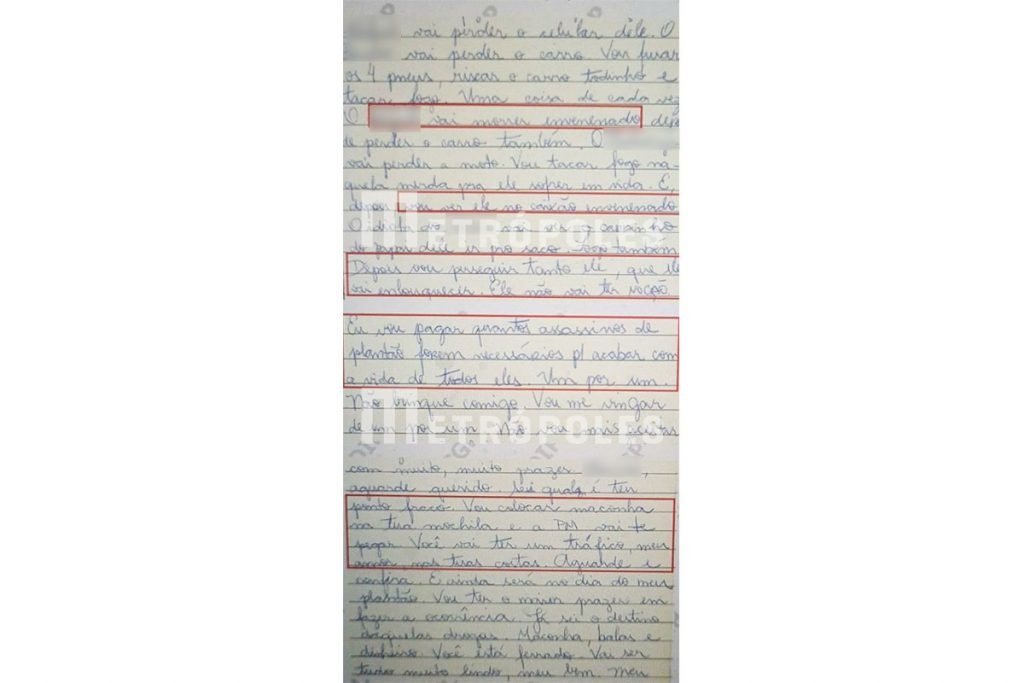 vai perder o celular dele. O
vai perder o carro. Vou furar
os 4 pneus, riscar o carro todinho e
tacar fogo. Uma coisa de cada vez
O vai morrer envenenado depo
de perder o carro também. O
vai perder a moto. Vou tacar fogo na-
quela merda pra ele sofrer em vida. E,
depois vou ver ele no caixão envenenado
O idiota do vai ver o carrinho
do papai dele ir pro saco. Fogo também
Depois vou perseguir tanto ele, que ele
vai enlouquecer. Ele não vai ter noção.
Eu vou pagar quantos assassinos de
plantão forem necessários p/ acabar com
a vida de todos eles. Um por um.
Não brinque comigo. Vou me vingar
de um por um. Não vou mais aceitar
METRÓPOLES
METRÓPOLES
com muito, muito prazer ,
aguarde querido. Sei qual é teu
ponto fraco. Vou colocar maconha
na tua mochila e a PM vai te
pegar. Você vai ter um tráfico, meu
amor nas tuas costas. Aguarde e
confira. E ainda será no dia do meu
plantão. Vou ter o maior prazer em
fazer a ocorrência. Já sei o destino
daquelas drogas. Maconha, balas e
dinheiro. Você está ferrado. Vai ser
tudo muito lindo, meu bem. Meu